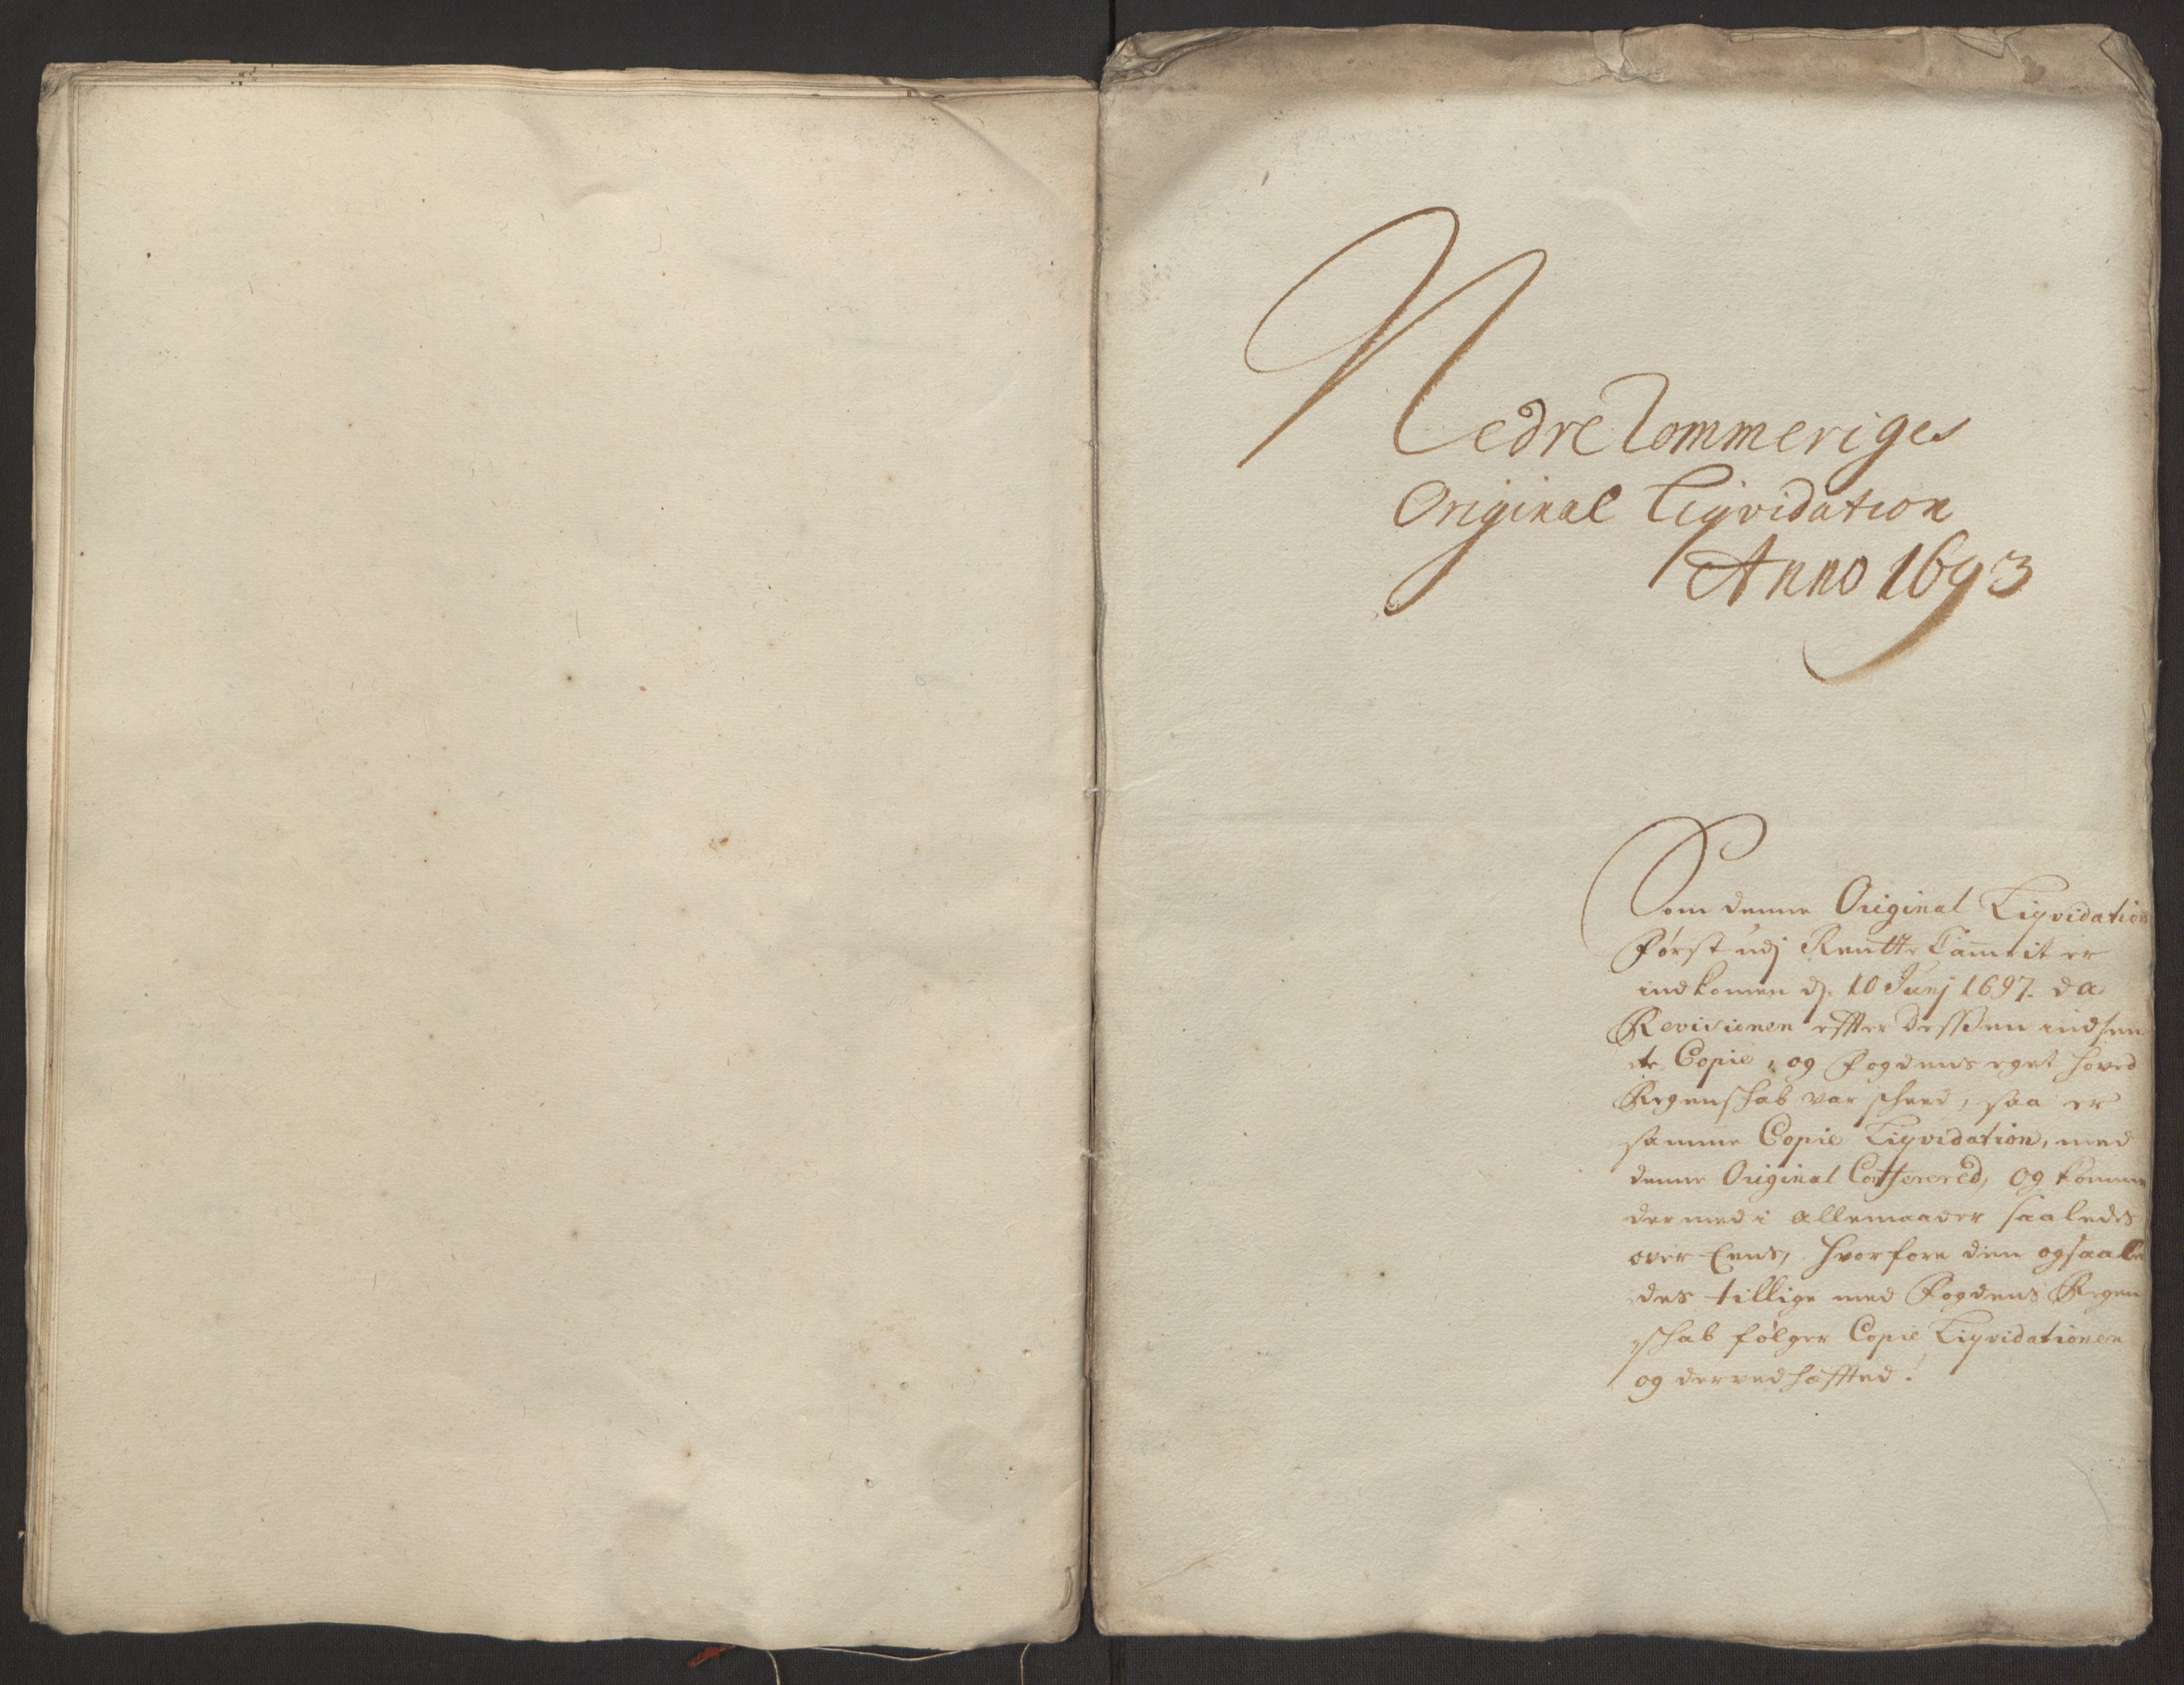 Nedre Rommeriges
Original Liqvidation
Anno 1693
Som denne Original Liqvidation
Først udj Rentte Camerit er
indkomen dj. 10 Junj 1697. da
Revisionen effter dessen indsen
te Copie, og Fogdens eget hoved
Regenskab var skeed, saa er
samme Copie Liqvidation, med
denne Original Confererèd, og komme
dermed i allemaader saaledes
over Eens, hvorfore den ogsaale
des tillige med Fogdens Regen
skab følger Copie Liqvidationen
og derved hæffted!